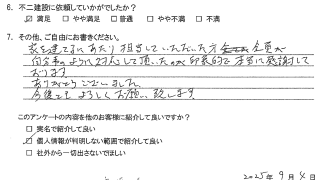 6. 不二建設に依頼していかがでしたか?
☑ 満足 □ やや満足 □ 普通 □ やや不満 □ 不満
7. その他、ご自由にお書きください。
家を建てるにあたり担当していただいた方全員が
対応して頂いたのが印象的で本当に感謝して
おります
ありがとうございました。
今後ともよろしくお願い致します。
このアンケートの内容を他のお客様に紹介して良いですか?
□ 実名で紹介して良い
☑ 個人情報が判明しない範囲で紹介して良い
□ 社外から一切出さないでほしい
2025年9月4日